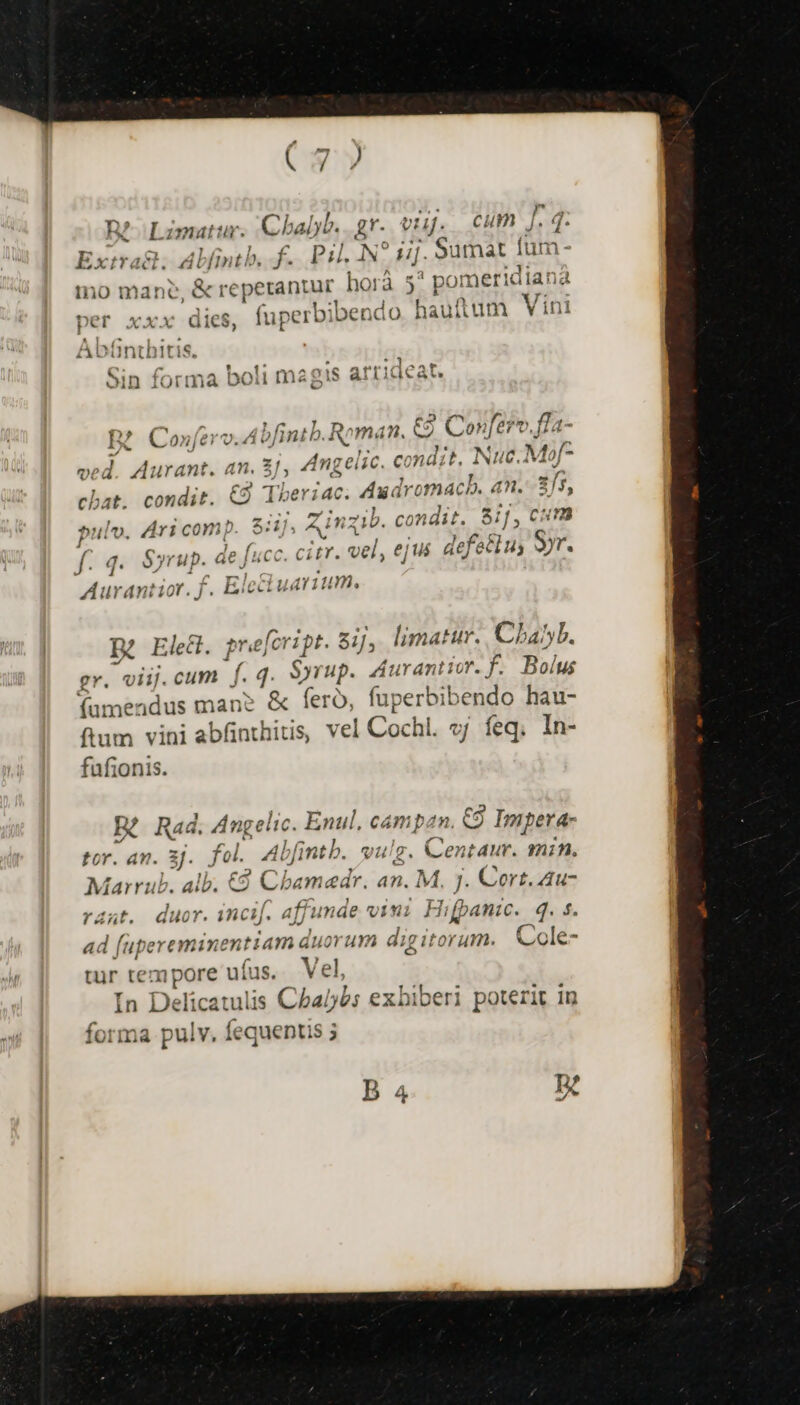 ( 7 )
℞ Limatur. Chalyb. gr. viij. cum ſ. q.
Extract. Abſinth. f. Pil. N° iij. Sumat ſum-
mo manè, & repetantur horâ 5ª pomeridianâ
per xxx dies, ſuperbibendo hauſtum Vini
Abſinthitis.
Sin forma boli magis arrideat.
℞ Conſerv. Abſinth. Roman. & Conſerv. fla-
ved. Aurant. an. ℥j, Angelic. condit. Nuc. Moſ-
chat. condit. & Theriac. Andromach. an. ℥ſs,
pulv. Ari comp. ʒiij, Zinzib. condit. ʒij, cum
ſ. q. Syrup. de ſucc. citr. vel, ejus defectu, Syr.
Aurantior. f. Electuarium.
℞ Elect. præſcript. ʒij, limatur. Chalyb.
gr. viij. cum ſ. q. Syrup. Aurantior. f. Bolus
ſumendus manè & ſerò, ſuperbibendo hau-
ſtum vini abſinthitis, vel Cochl. vj ſeq. In-
fuſionis.
℞ Rad. Angelic. Enul. campan. & Impera-
tor. an. ℥j. fol. Abſinth. vulg. Centaur. min.
Marrub. alb. & Chamædr. an. M. j. Cort. Au-
rant. duor. inciſ. affunde vini Hiſpanic. q. s.
ad ſupereminentiam duorum digitorum. Cole-
tur tempore uſus. Vel,
In Delicatulis Chalybs exhiberi poterit in
forma pulv. ſequentis ;
B 4 ℞